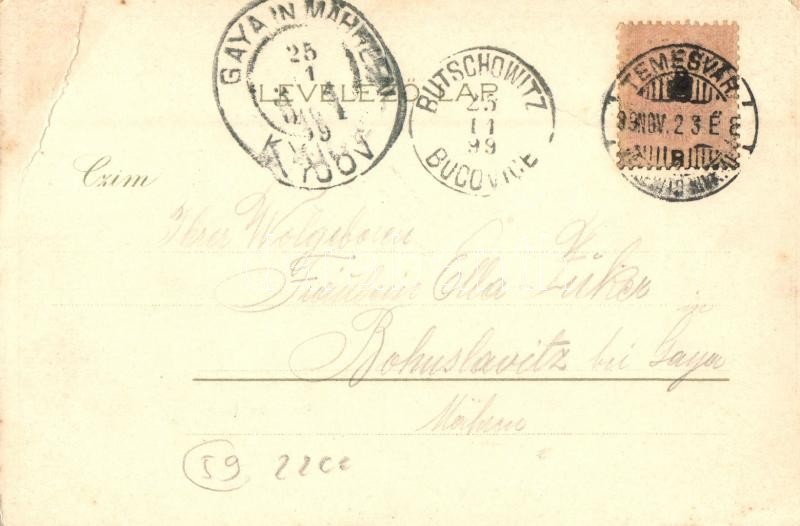 GAYA IN MÄHREN
25
1
99
KYJOV
LEVELEZŐ-LAP.
BUTSCHOWITZ
25
11
99
BUČOVICE
TEMESVÁR
99 NOV. 23 E 8
Czim
Ihrer Wolgeboren
Fräulein Ella Zuker
in
Bohuslavitz bei Gaya
Mähren
59 22